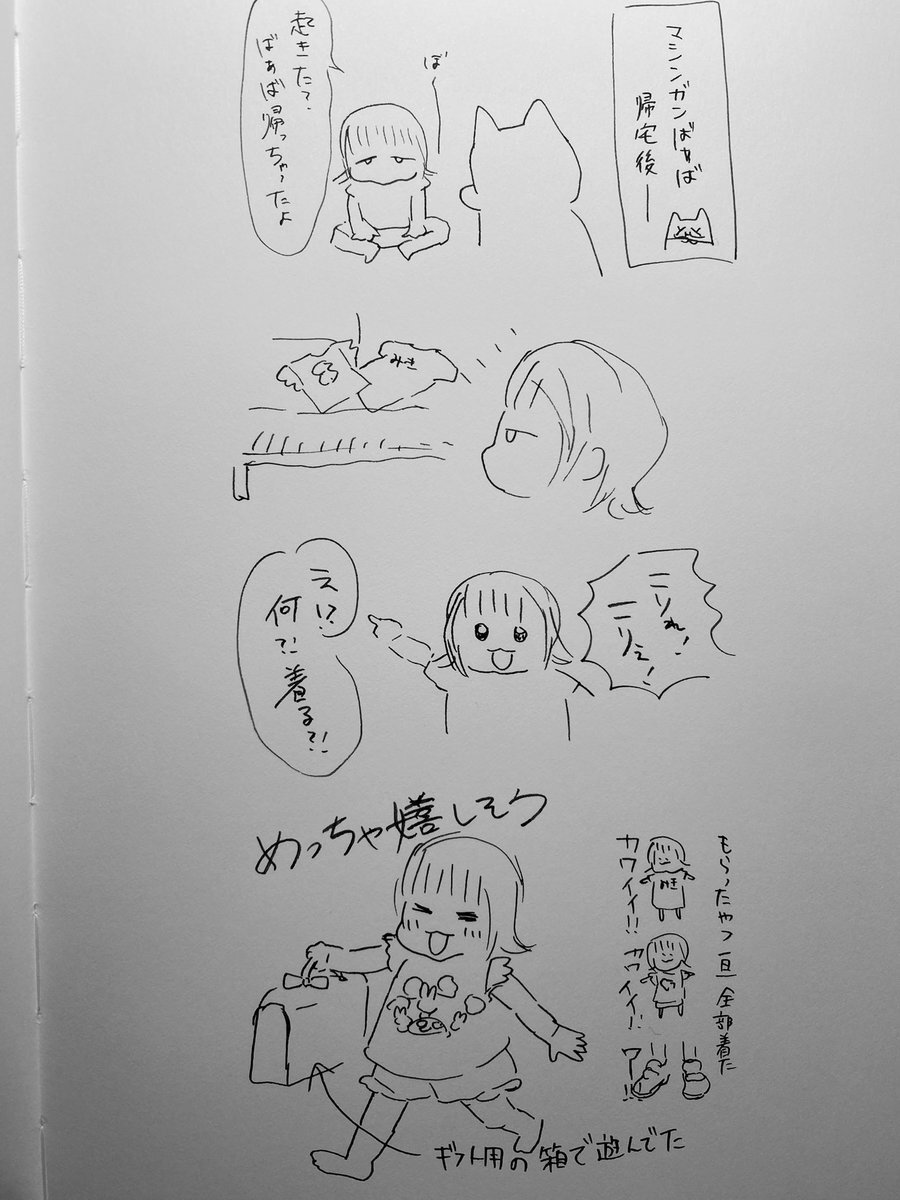 マシンガンばぁば
帰宅後ー
ぼ〜
起きた?
ばぁば帰っちゃったよ
みき
こりれ!
こりえ!
えい?
何?!着る?!
めっちゃ嬉しそう
もらったやつ一旦全部着た
カワイイ!!
カワイイ!!
ワー!!
ギフト用の箱で遊んでた